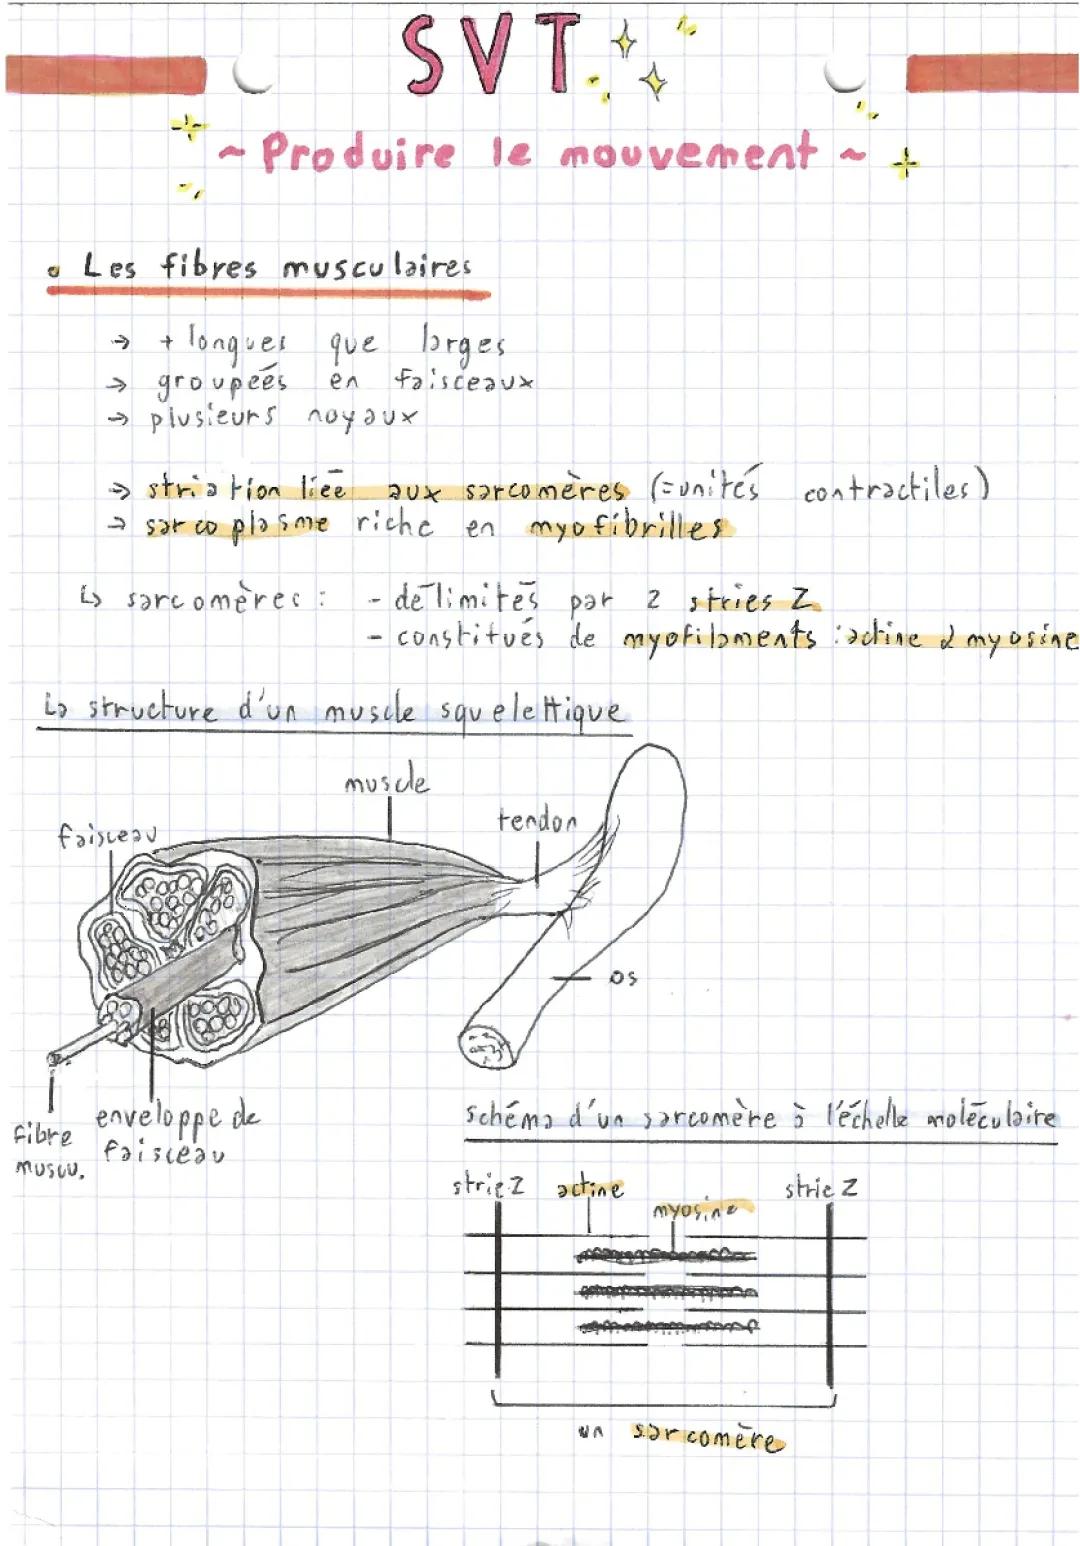 SVT
~ Produire le mouvement ~
• Les fibres musculaires
→ + longues que larges
→ groupées en faisceaux
→ plusieurs noyaux
→ striation liée aux sarcomères (=unités contractiles)
→ sarcoplasme riche en myofibrilles
↳ sarcomères : - délimités par 2 stries Z
- constitués de myofilaments : actine & myosine
La structure d'un muscle squelettique
muscle
tendon
faisceau
os
fibre muscu.
enveloppe de faisceau
schéma d'un sarcomère à l'échelle moléculaire
strie Z actine myosine strie Z
un sarcomère